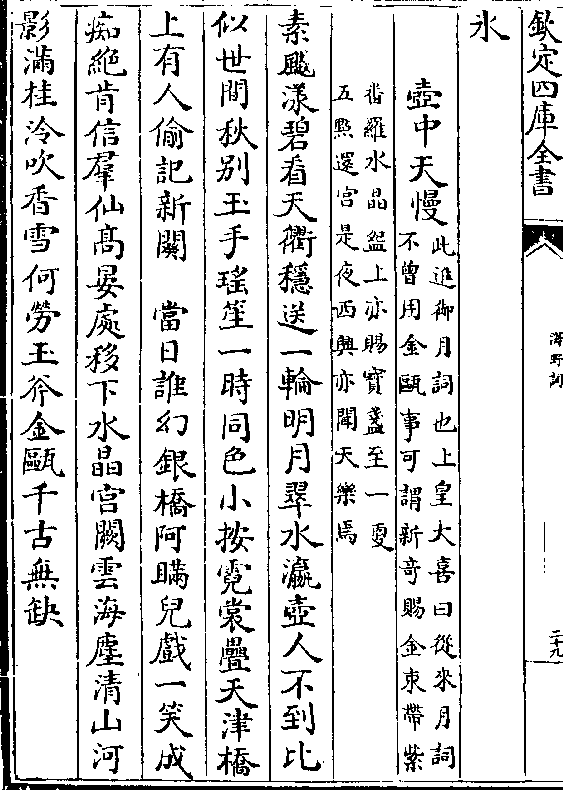 欽定四庫全書
海野詞
二十九
氷
壺中天慢
此進御月詞也上皇大喜曰從來月詞
不曾用金甌事可謂新竒賜金束帶紫
畨羅水晶盌上亦賜寳盞至一更
五㸃還宫是夜西興亦聞天樂焉
素飈漾碧看天衢穩送一輪明月翠水瀛壺人不到比
似世間秋别玉手瑶笙一時同色小按霓裳疊天津橋
上有人偷記新闋　當日誰幻銀橋阿瞞兒戲一笑成
痴絶肯信羣仙髙晏處移下水晶宫闕雲海塵清山河
影滿桂冷吹香雪何勞玉斧金甌千古無缺